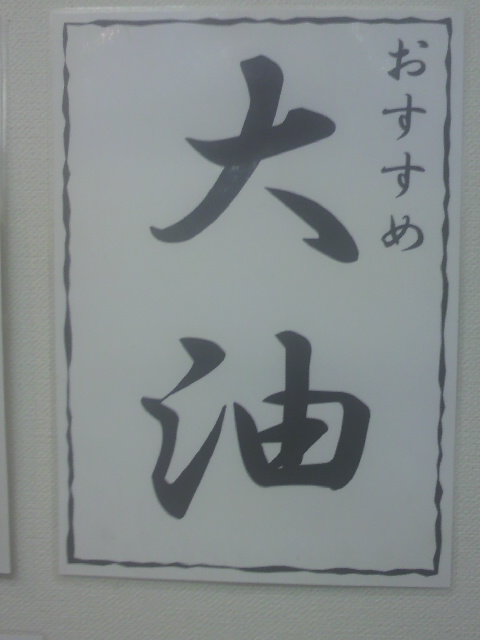 おすすめ
大油